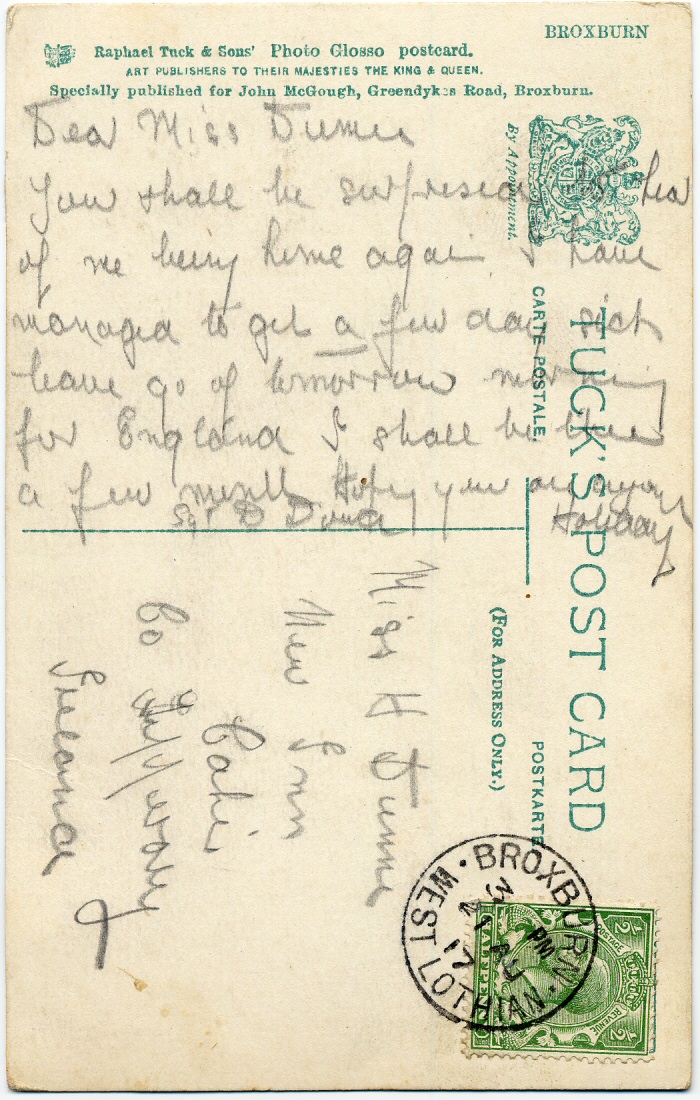 BROXBURN
Raphael Tuck & Sons' Photo Glosso postcard.
ART PUBLISHERS TO THEIR MAJESTIES THE KING & QUEEN.
Specially published for John McGough, Greendykes Road, Broxburn.
By Appointment.
Dea Miss Dunne
You shall be surpresed to hea
of me being home again I have
managed to get a few day sick
leave go of tomorrow morning
for England I shall be there
a few month Hope you are enjoy
Holiday
Sgt D
CARTE POSTALE.
TUCK'S POST CARD
(FOR ADDRESS ONLY.)
POSTKARTE
Miss H Dunne
New Inn
Cahir
Co Tipperary
Ireland
BROXBURN
WEST LOTHIAN
3 PM
21 AU
17
POSTAGE
REVENUE
1/2
1/2